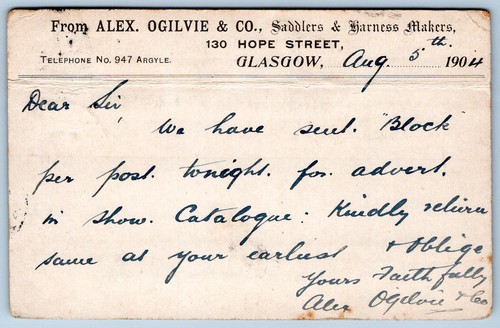 From ALEX. OGILVIE & CO., Saddlers & Harness Makers,
130 HOPE STREET,
TELEPHONE No. 947 ARGYLE.
GLASGOW, Aug. 5th. 1904
Dear Sir,
We have sent. "Block"
per post. tonight. for. advert.
in show. Catalogue: Kindly return
same at your earliest & oblige
Yours Faithfully
Alex Ogilvie & Co